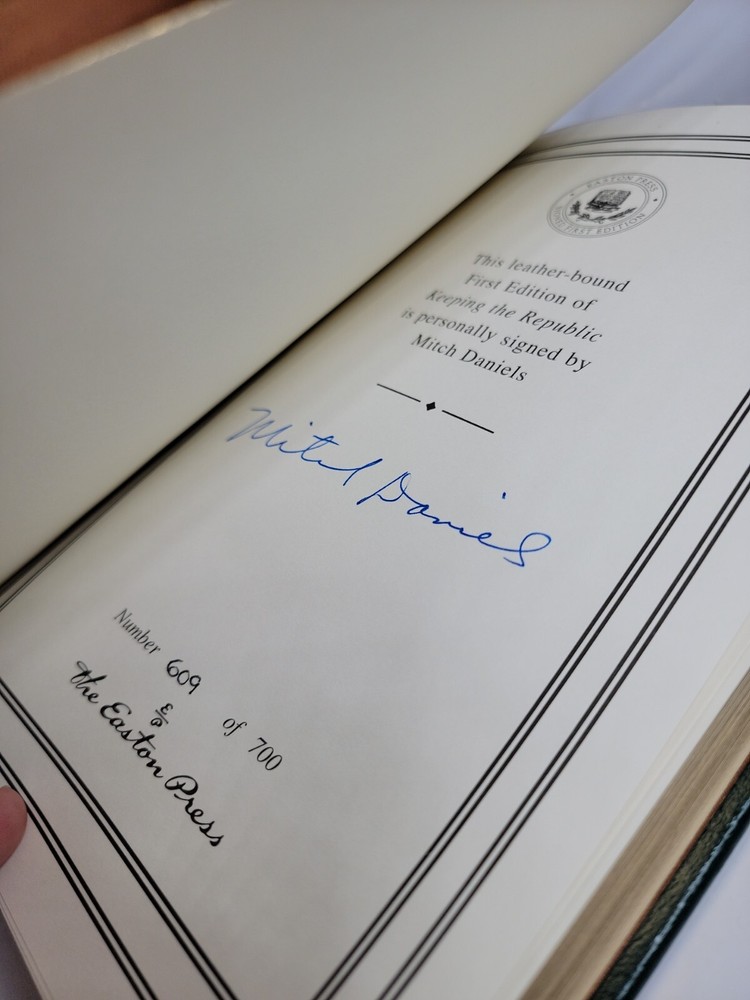 EASTON PRESS
SIGNED FIRST EDITION
This leather-bound
First Edition of
Keeping the Republic
is personally signed by
Mitch Daniels
Mitch Daniels
Number 609 of 700
The Easton Press